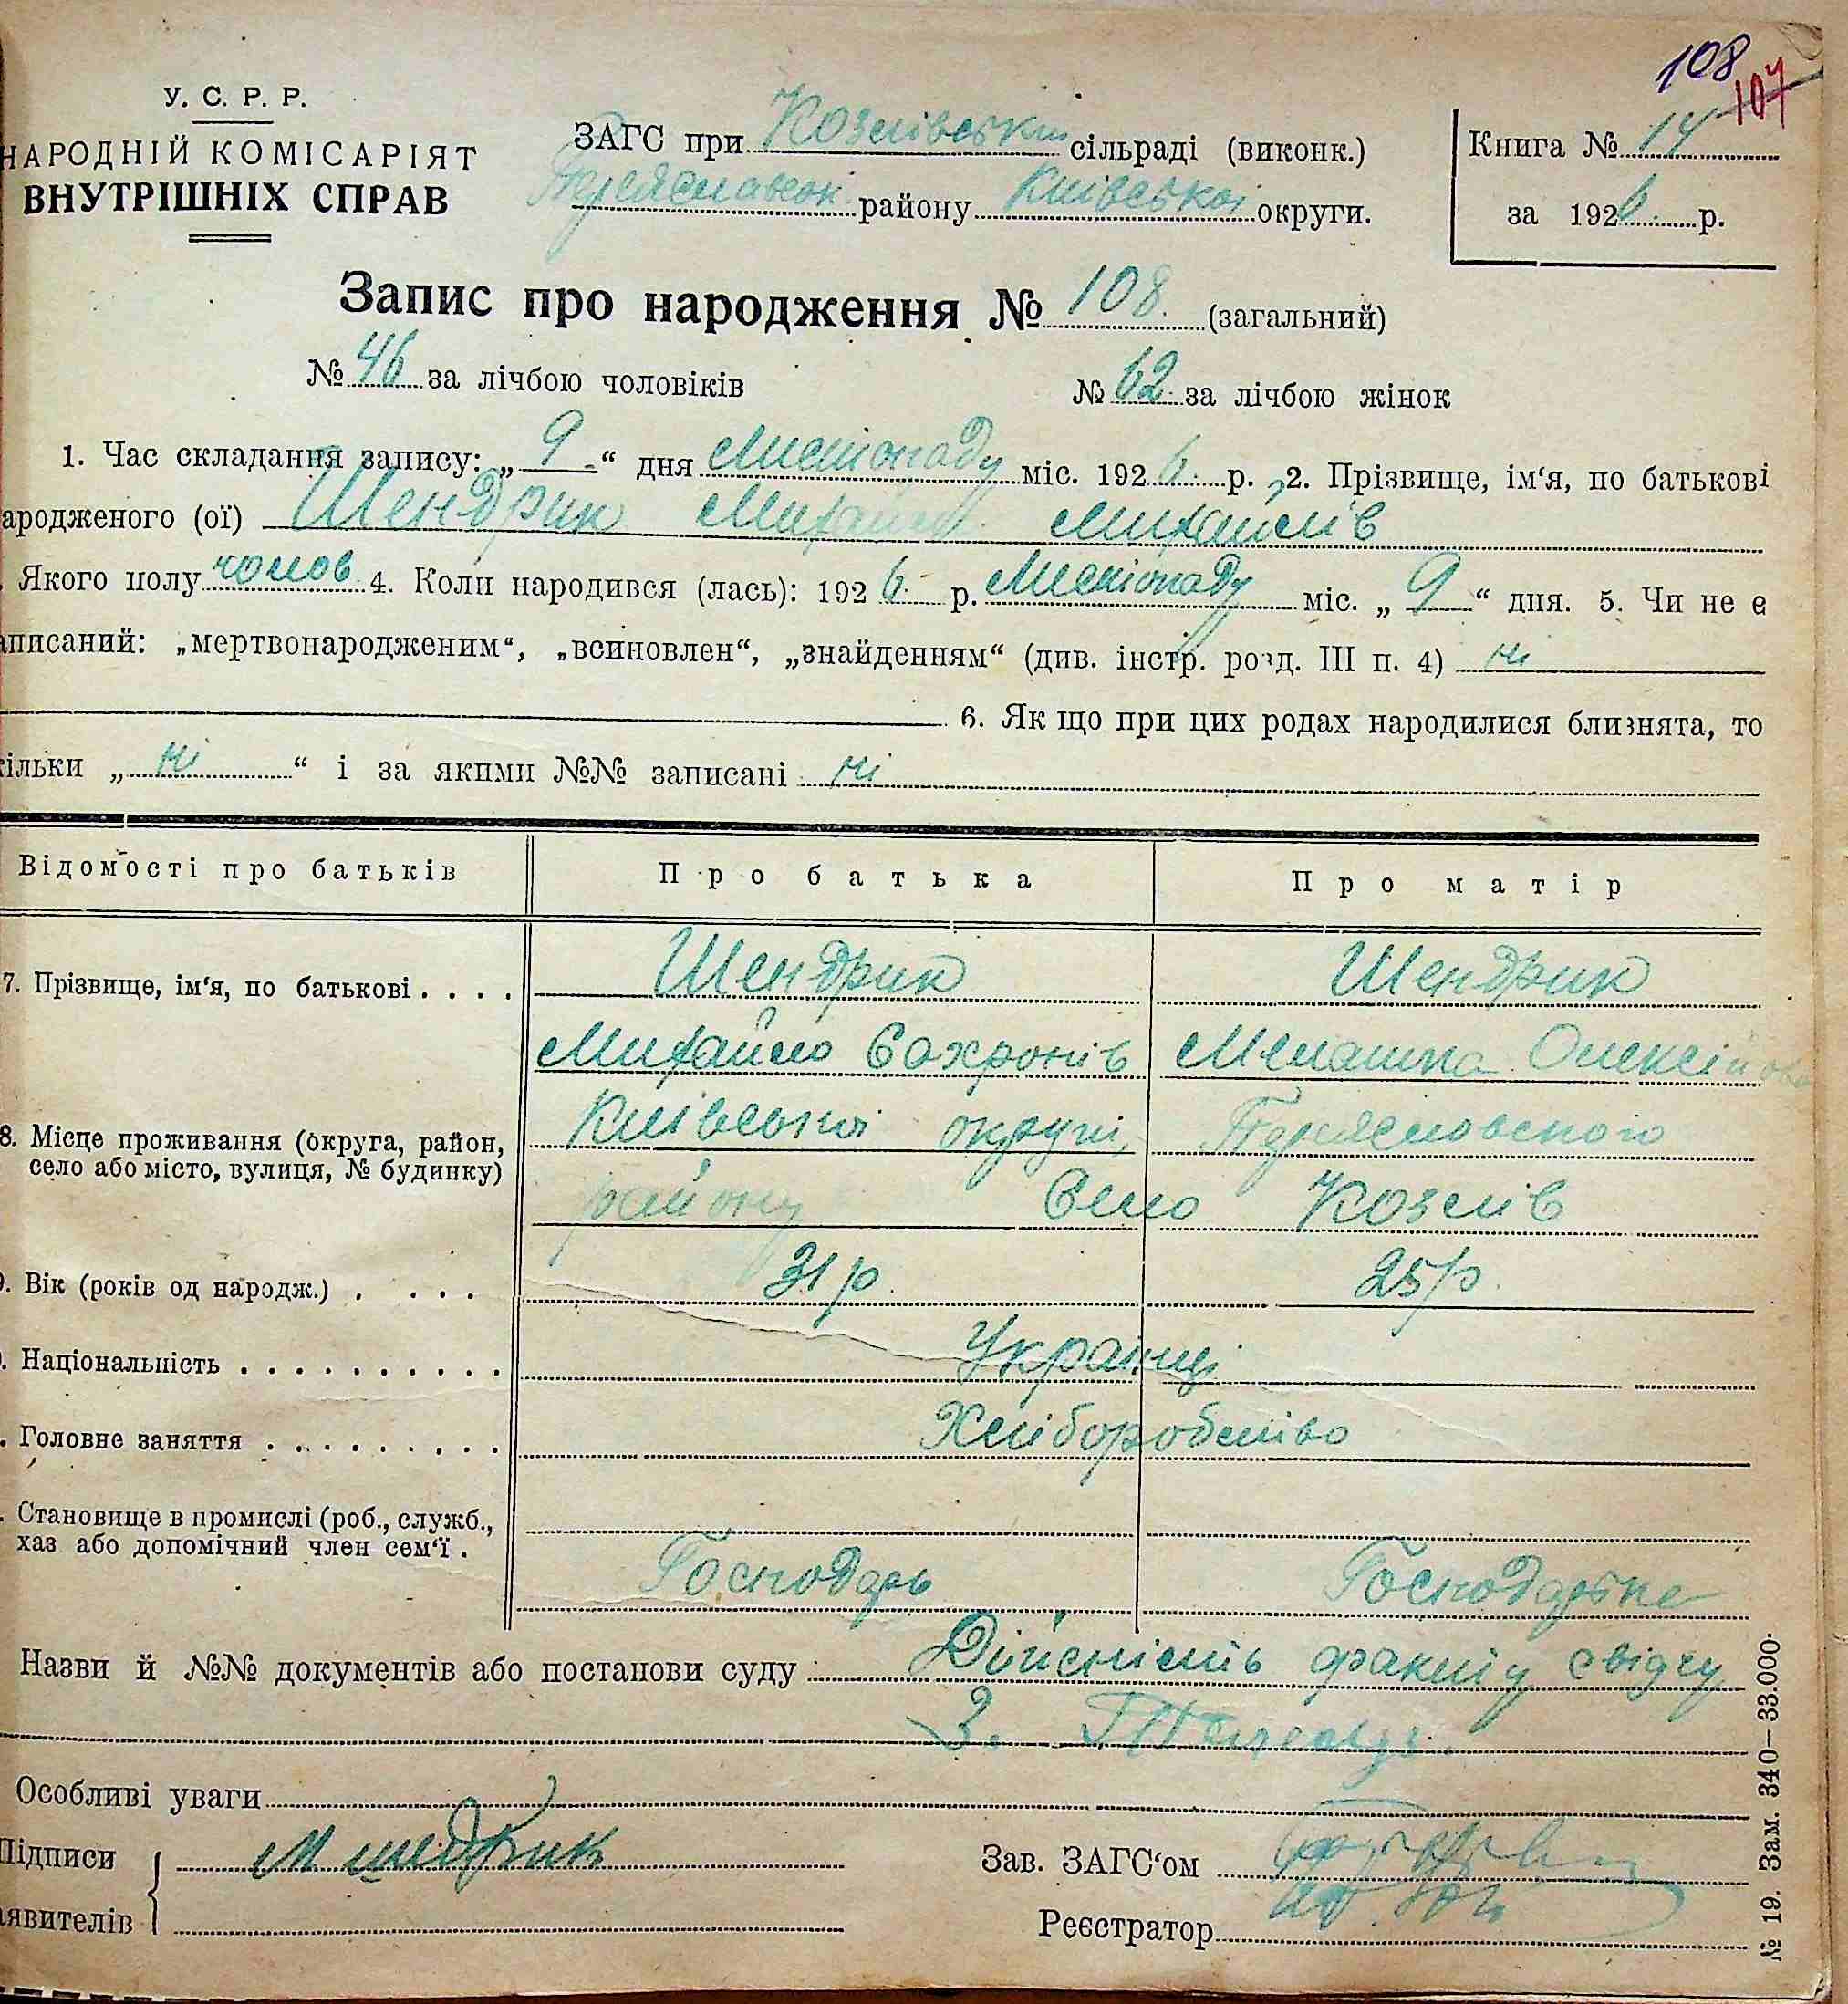 108
107
У. С. Р. Р.
НАРОДНІЙ КОМІСАРІЯТ
ВНУТРІШНІХ СПРАВ
ЗАГС при Козлівській сільраді (виконк.)
Переяславськ району Київської округи.
Книга № 14
за 1926 р.
Запис про народження № 108. (загальний)
№ 46 за лічбою чоловіків № 62 за лічбою жінок
1. Час складання запису: „9“ дня Листопаду міс. 1926 р. 2. Прізвище, ім‘я, по батькові
ародженого (ої) Шендрик Михайло Михайлів
Якого полу чолов 4. Коли народився (лась): 1926 р. Листопаду міс. „9“ дня. 5. Чи не є
аписаний: „мертвонародженим“, „всиновлен“, „знайденням“ (див. інстр. розд. III п. 4) ні
6. Як що при цих родах народилися близнята, то
ільки „ні“ і за якими №№ записані ні
Відомості про батьків Про батька Про матір
7. Прізвище, ім‘я, по батькові . . . . Шендрик Шендрик
Михайло Сохронів Мелашка Олексійова
8. Місце проживання (округа, район, село або місто, вулиця, № будинку) Київської округи, Переяславського
району Село Козлів
9. Вік (років од народж.) . . . . . 31 р. 25 р.
. Національність . . . . . . . . . . Українці
. Головне заняття . . . . . . . . . Хліборобство
. Становище в промислі (роб., служб.,
хаз або допомічний член сем‘ї .
Господарь Господарька
Назви й №№ документів або постанови суду Дійсність факту свідчу
З.
Особливі уваги
Підписи М шедрик
Зав. ЗАГС‘ом
аявителів
Реєстратор
№ 19. Зам. 340—33.000.